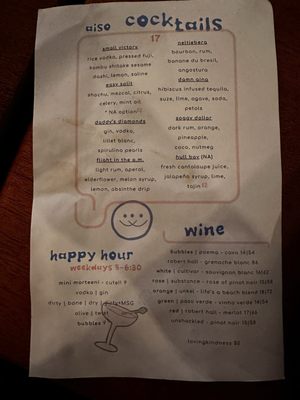 also cocktails
17
small victory
rice vodka, pressed fuji,
kombu shitake sesame
dashi, lemon, saline
easy split
shochu, mezcal, citrus,
celery, mint oil
* NA option
daddy's diamonds
gin, vodka,
lillet blanc,
spirulina pearls
flight in the a.m.
light rum, aperol,
elderflower, melon syrup,
lemon, absinthe drip
bourbon, rum,
banane du bresil,
angostura
damn gina
hibiscus infused tequila,
suze, lime, agave, soda,
petals
soggy dollar
dark rum, orange,
pineapple,
coco, nutmeg
hull bay (NA)
fresh cantaloupe juice,
jalapeño syrup, lime,
tajin 12
happy hour
weekdays 5-6:30
mini morteeni - cutell 9
vodka | gin
dirty | bone | dry | MSG
olive | twist
bubbles 9
wine
bubbles | poema - cava 14|54
robert hall - grenache blanc
white | cultivar - sauvignon blanc 16|62
rose | substance - rose of pinot noir
orange | unkel - life's a beach blend 18|72
green | paso verde - vinho verde 14|54
red | robert hall - merlot 17|66
unshackled - pinot noir
lovingkindness